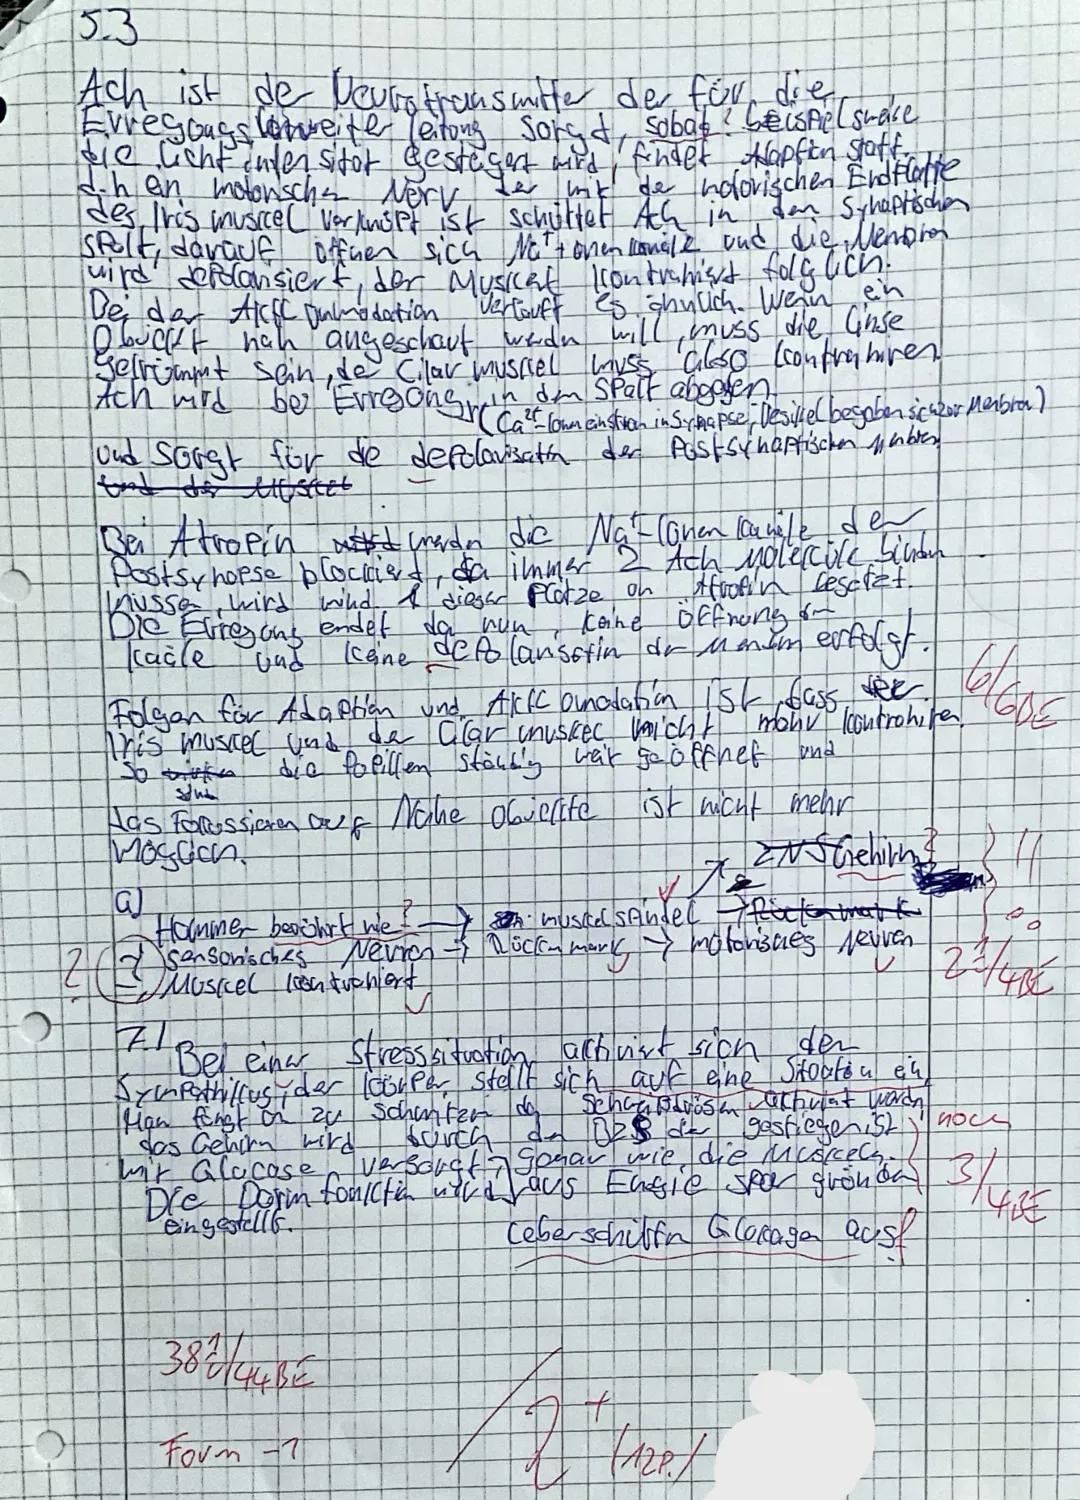 5.3
Ach ist de Neurotransmitter der für die
Erregungs weiterleitung sorgt, sobald? beispielsweise
die Licht intensität gesteigert wird, findet Adaption statt
d.h ein motorischer Nerv der mit de motorischen Endplatte
des Iris muskel verknüpft ist schüttet Ach in den Synaptischen
Spalt, darauf öffnen sich Na+ Ionen kanäle und die Membran
wird depolarisiert, der Muskel kontrahiert folglich.
Bei der Akkommodation verläuft es ähnlich. Wenn ein
Objekt nah angeschaut werden will, muss die Linse
gekrümmt sein, de Ciliar muskel muss also kontrahiren.
Ach wird bei Erregung in den Spalt abgegeben
(Ca2+-Ioneneinstrom in Synapse, Vesikel begeben sich zur Membran)
und sorgt für die depolarisation der Postsynaptischen Membran
und der Muskel
Bei Atropin werden die Na+-Ionen kanäle der
Postsynapse blockiert, da immer 2 Ach Moleküle binden
müssen, wird 1 dieser Plätze an Atropin besetzt.
Die Erregung endet da nun, keine Öffnung der
Kanäle und keine depolarisation der Membran erfolgt.
6/6BE
Folgen für Adaption und Akkommodation ist, dass der
Iris muskel und de Ciliar muskel nicht mehr kontrahiren,
so sind die Pupillen ständig weit geöffnet und
das Fokussieren auf Nahe Objekte ist nicht mehr
möglich.
ZNS Gehirn?
a)
Hammer berührt wie? → muskelspindel → Rückenmark
? sensorisches Neuron → Rückenmark → motorisches Neuron
→ Muskel kontrahiert
2 1/2/4BE
7.1
Bei einer Stresssituation aktivirt sich der
Sympathikus, der Körper stellt sich auf eine Situation ein
Man fängt an zu schwitzen da Schweißdrüsen aktiviert werden
das Gehirn wird durch den der gestiegen ist
mit Glucose versorgt, genau wie die Muskeln.
Die Darm funktion wird aus Energie spar gründen
eingestellt.
noch
3/4BE
Leber schüttn Glukagon aus?
38 1/2/44BE
Form -1
2+
(12P.)